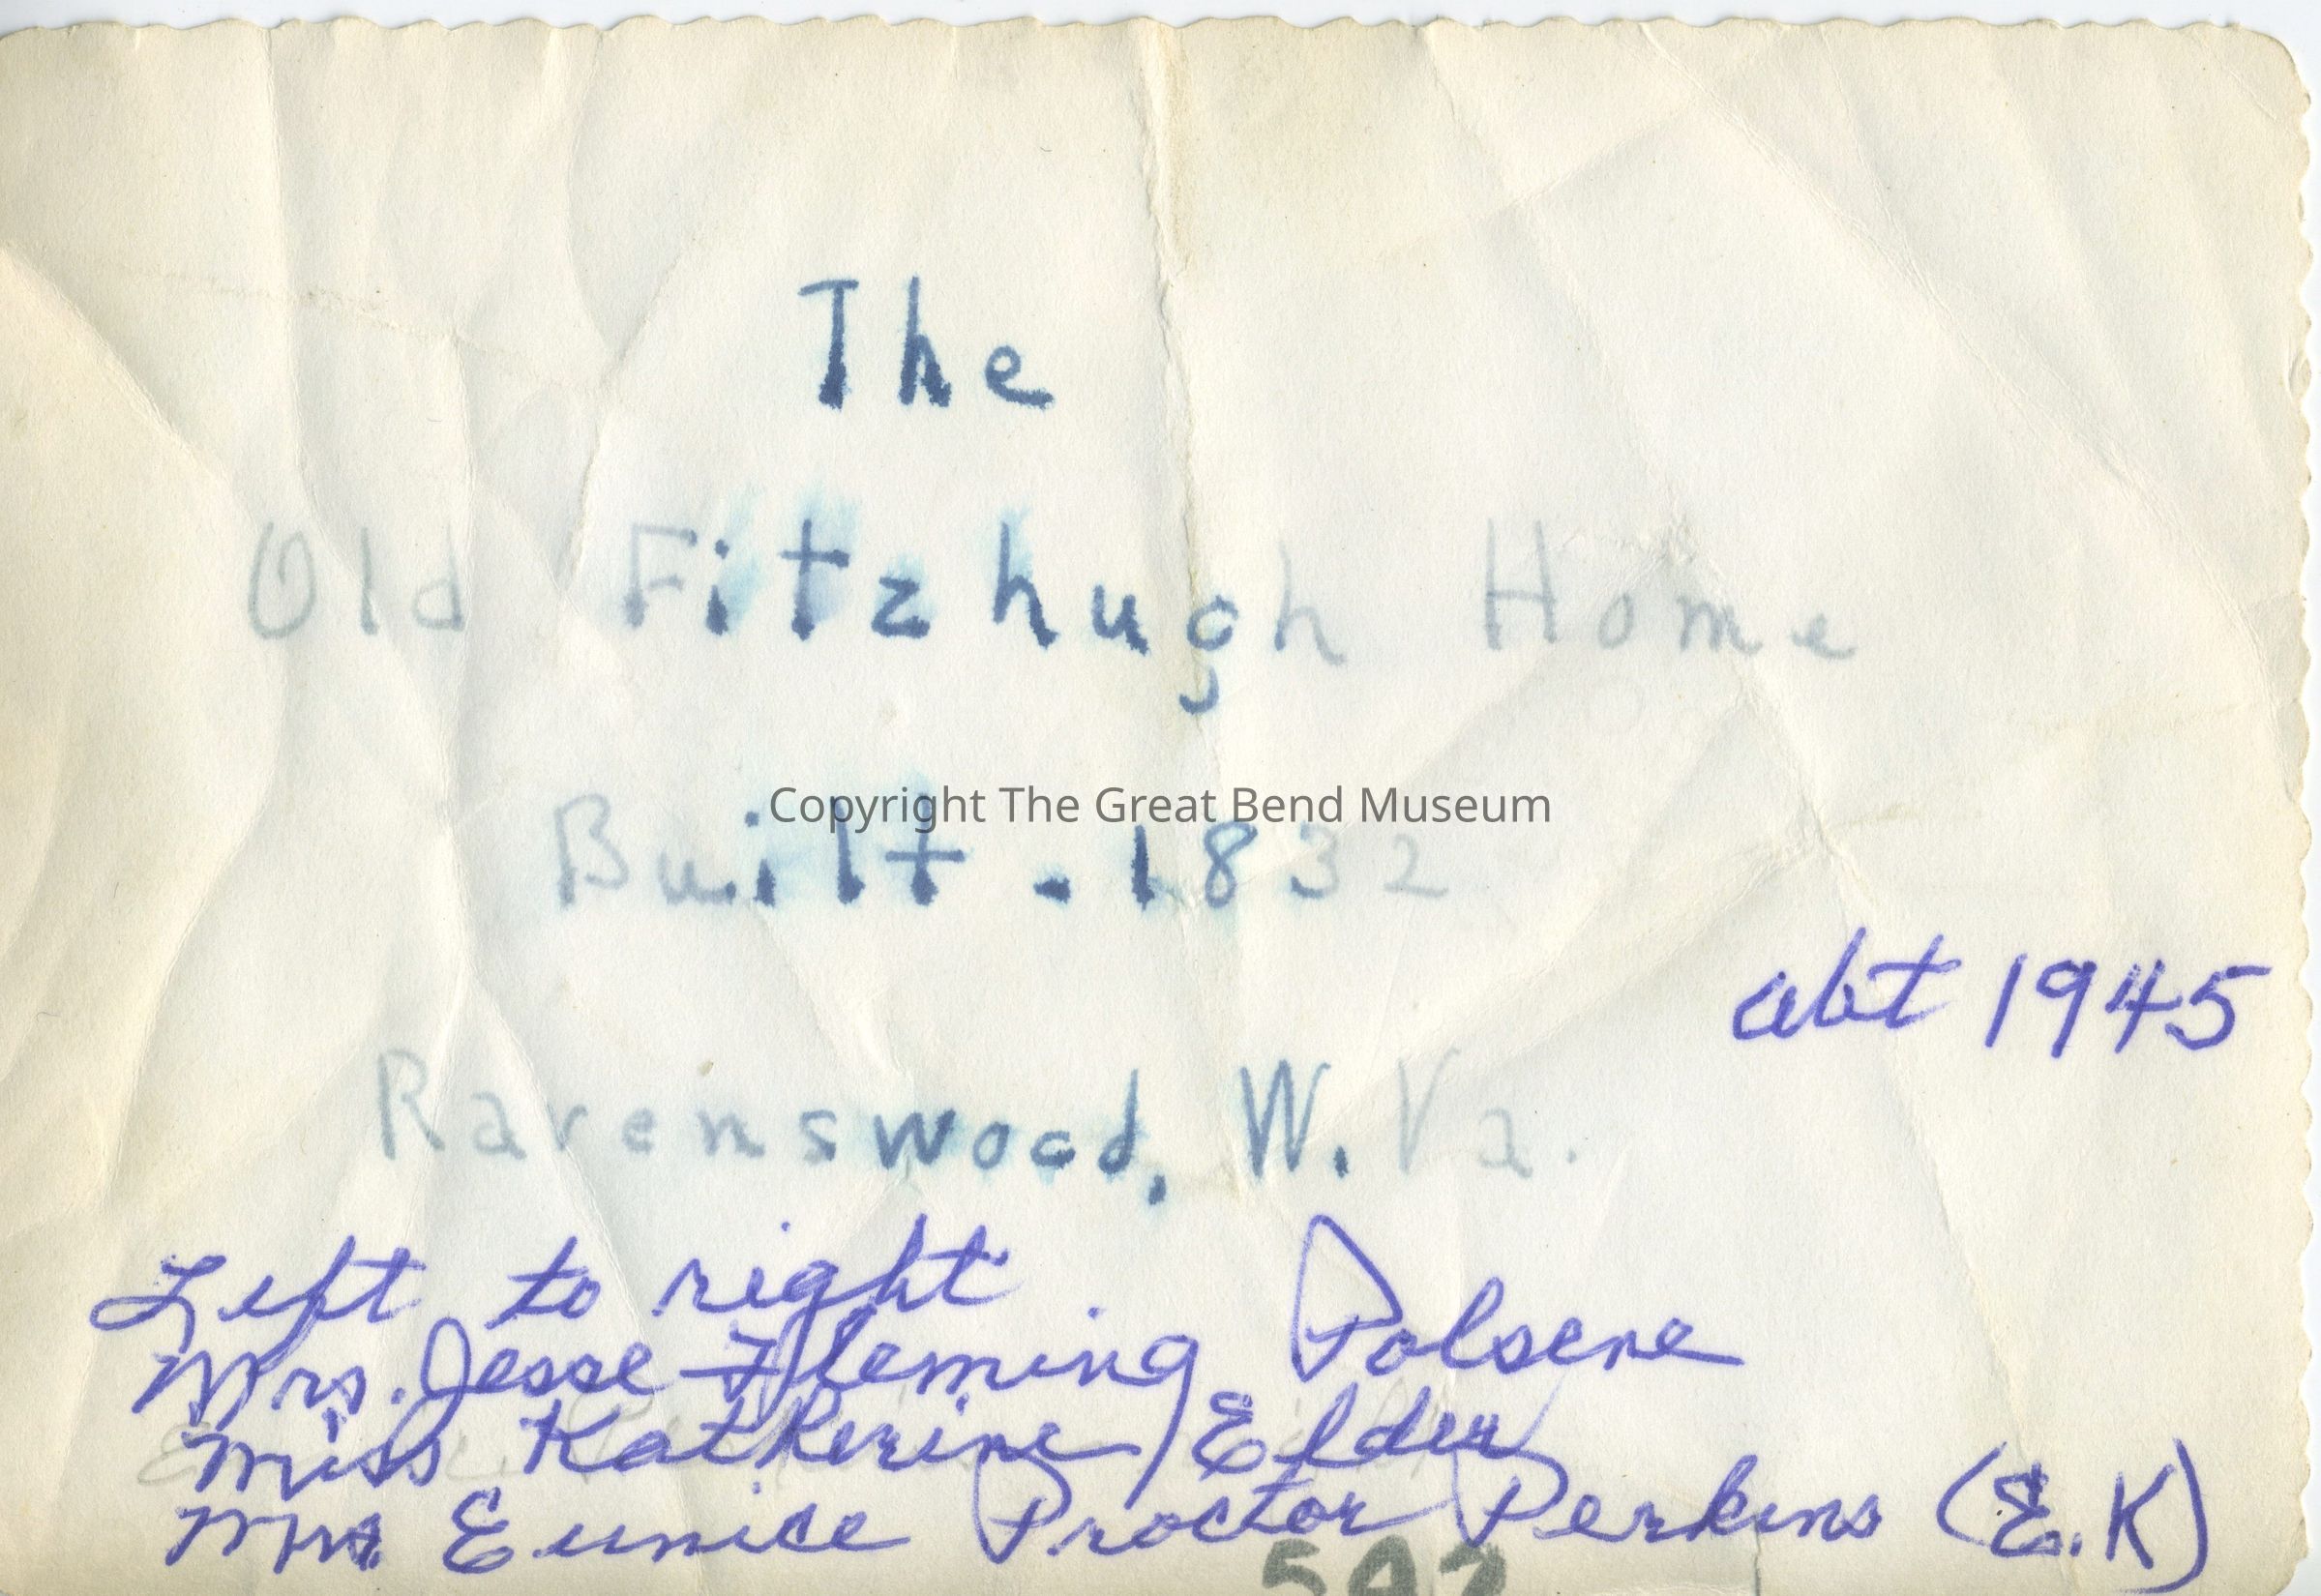 The
Old Fitzhugh Home
Copyright The Great Bend Museum
Built - 1832
abt 1945
Ravenswood, W. Va.
Left to right
Mrs. Jesse Fleming Polsene
Miss Katherine Elder
Mrs Eunice Proctor Perkins (E.K)